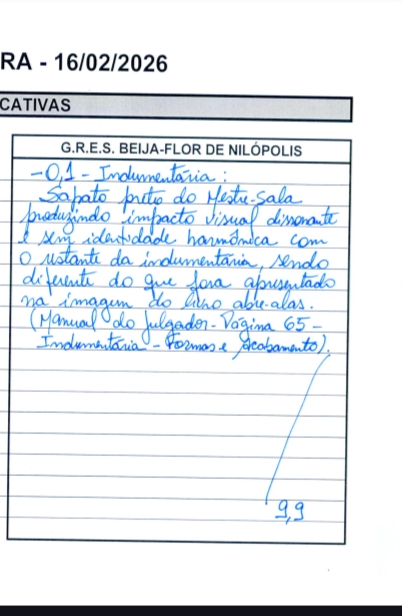 RA - 16/02/2026
CATIVAS
G.R.E.S. BEIJA-FLOR DE NILÓPOLIS
-0,1 - Indumentária:
Sapato preto do Mestre-Sala
produzindo impacto visual dissonante
e sem identidade harmônica com
o restante da indumentária, sendo
diferente do que fora apresentado
na imagem do livro abre-alas.
(Manual do Julgador - Página 65 -
Indumentária - Formas e Acabamento).
9,9